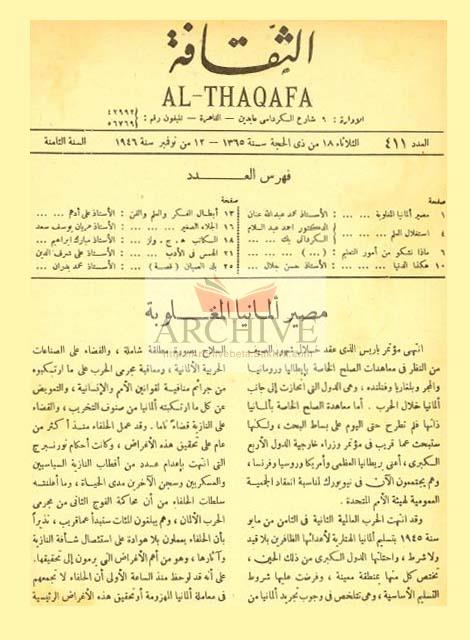 الثقافة
AL-THAQAFA
الإدارة : ٩ شارع الكرداسى عابدين — القاهرة — تليفون رقم : ٤٢٩٩٢ ٥٦٧٦٩
العدد ٤١١ الثلاثاء ١٨ من ذى الحجة سنة ١٣٦٥ — ١٢ من نوفمبر سنة ١٩٤٦ السنة الثامنة
فهرس العدد
صفحة
١ مصير ألمانيا المغلوبة ... ... : الأستاذ محمد عبد الله عنان
٤ استغلال العلم ... ... ... : الدكتور احمد عبد السلام الكردانى بك ... ...
٦ ماذا نشكو من أمور التعليم : ( ... ) ... ... ...
١٠ هكذا الدنيا ... ... ... : الأستاذ حسن جلال ... ...
صفحة
١٣ أبطال الفكر والعلم والفن : الأستاذ على أدهم ... ...
١٦ الجلاء الصغير ... ... : الأستاذ عريان يوسف سعد
١٨ الكاتب ه . ج . ولز ... : الأستاذ مبارك ابراهيم ...
٢١ الهمس فى الأدب ... ... : الأستاذ على شرف الدين
٢٥ بلد العميان ( قصة ) ... : الأستاذ محمد بدران ...
مصير ألمانيا المغلوبة
ARCHIVE
انتهى مؤتمر باريس الذى عقد خلال شهور الصيف
من النظر فى معاهدات الصلح الخاصة بإيطاليا ورومانيا
والمجر وبلغاريا وفنلنده ، وهى الدول التى انحازت إلى جانب
ألمانيا خلال الحرب . أما معاهدة الصلح الخاصة بألمانيا
ذاتها فلم تطرح حتى اليوم على بساط البحث ، ولكنها
ستبحث عما قريب فى مؤتمر وزراء خارجية الدول الأربع
الكبرى ، أعنى بريطانيا العظمى وأمريكا وروسيا وفرنسا ،
وهم يجتمعون الآن فى نيويورك لمناسبة انعقاد الجمعية
العمومية لهيئة الأمم المتحدة .
وقد انتهت الحرب العالمية الثانية فى الثامن من مايو
سنة ١٩٤٥ بتسليم ألمانيا الهتلرية لأعدائها الظافرين بلا قيد
ولا شرط ، واحتلتها الدول الكبرى من ذلك الحين ،
تختص كل منها بمنطقة معينة ، وفرضت عليها شروط
التسليم الأساسية ، وهى تتلخص فى وجوب تجريد ألمانيا من
السلاح بصورة مطلقة شاملة ، والقضاء على الصناعات
الحربية الألمانية ، ومعاقبة مجرمى الحرب على ما ارتكبوه
من جرائم منافية لقوانين الأمم والإنسانية ، والتعويض
عن كل ما ارتكبته ألمانيا من صنوف التخريب ، والقضاء
على النازية قضاء تاما . وقد عمل الحلفاء منذ أكثر من
عام على تحقيق هذه الأغراض ، وكانت أحكام نورنبرج
التى انتهت بإعدام عدد من أقطاب النازية السياسيين
والعسكريين وسجن الآخرين مدى الحياة ، وما أعلنته
سلطات الحلفاء من أن محاكمة الفوج الثانى من مجرمى
الحرب الألمان ، وهم يبلغون المئات ستبدأ عما قريب ، نذيراً
بأن الحلفاء يعملون بلا هوادة على استئصال شأفة النازية
وآثارها ، وهو من أهم الأغراض التى يرمون إلى تحقيقها.
على أنه قد لوحظ منذ الساعة الأولى أن الحلفاء لا تجمعهم
فى معاملة ألمانيا المهزومة أو تحقيق هذه الأغراض الرئيسية